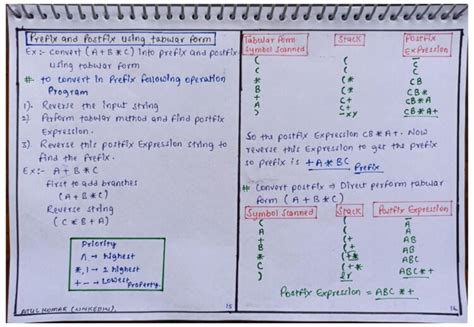 Prefix and Postfix using tabular form
Ex:- Convert (A+B*C) into prefix and postfix
using tabular form
# to convert in Prefix following operation
Program
1). Reverse the input string
2) Perform tabular method and find postfix
Expression.
3). Reverse this postfix Expression string to
find the Prefix.
Ex:- A+B*C
First to add branches
(A+B*C)
Reverse string
(C*B+A)
Priority
^ → highest
*, / → 2 highest
+ - → Lowest Property.
ATUL KUMAR (LINKEDIN).
15
Tabular Form
Symbol Scanned
Stack
Postfix
Expression
( (
C ( C
* (* C
B (* CB
+ (+ CB*
A (+ CB*A
) CB*A+
So the postfix Expression CB*A+. Now
reverse this Expression to get the prefix
so prefix is +A*BC Prefix
# Convert postfix → Direct perform tabular
form (A+B*C)
Symbol Scanned Stack Postfix Expression
( (
A ( A
+ (+ A
B (+ AB
* (+* AB
C (+* ABC
) ABC*+
Postfix Expression = ABC*+
16